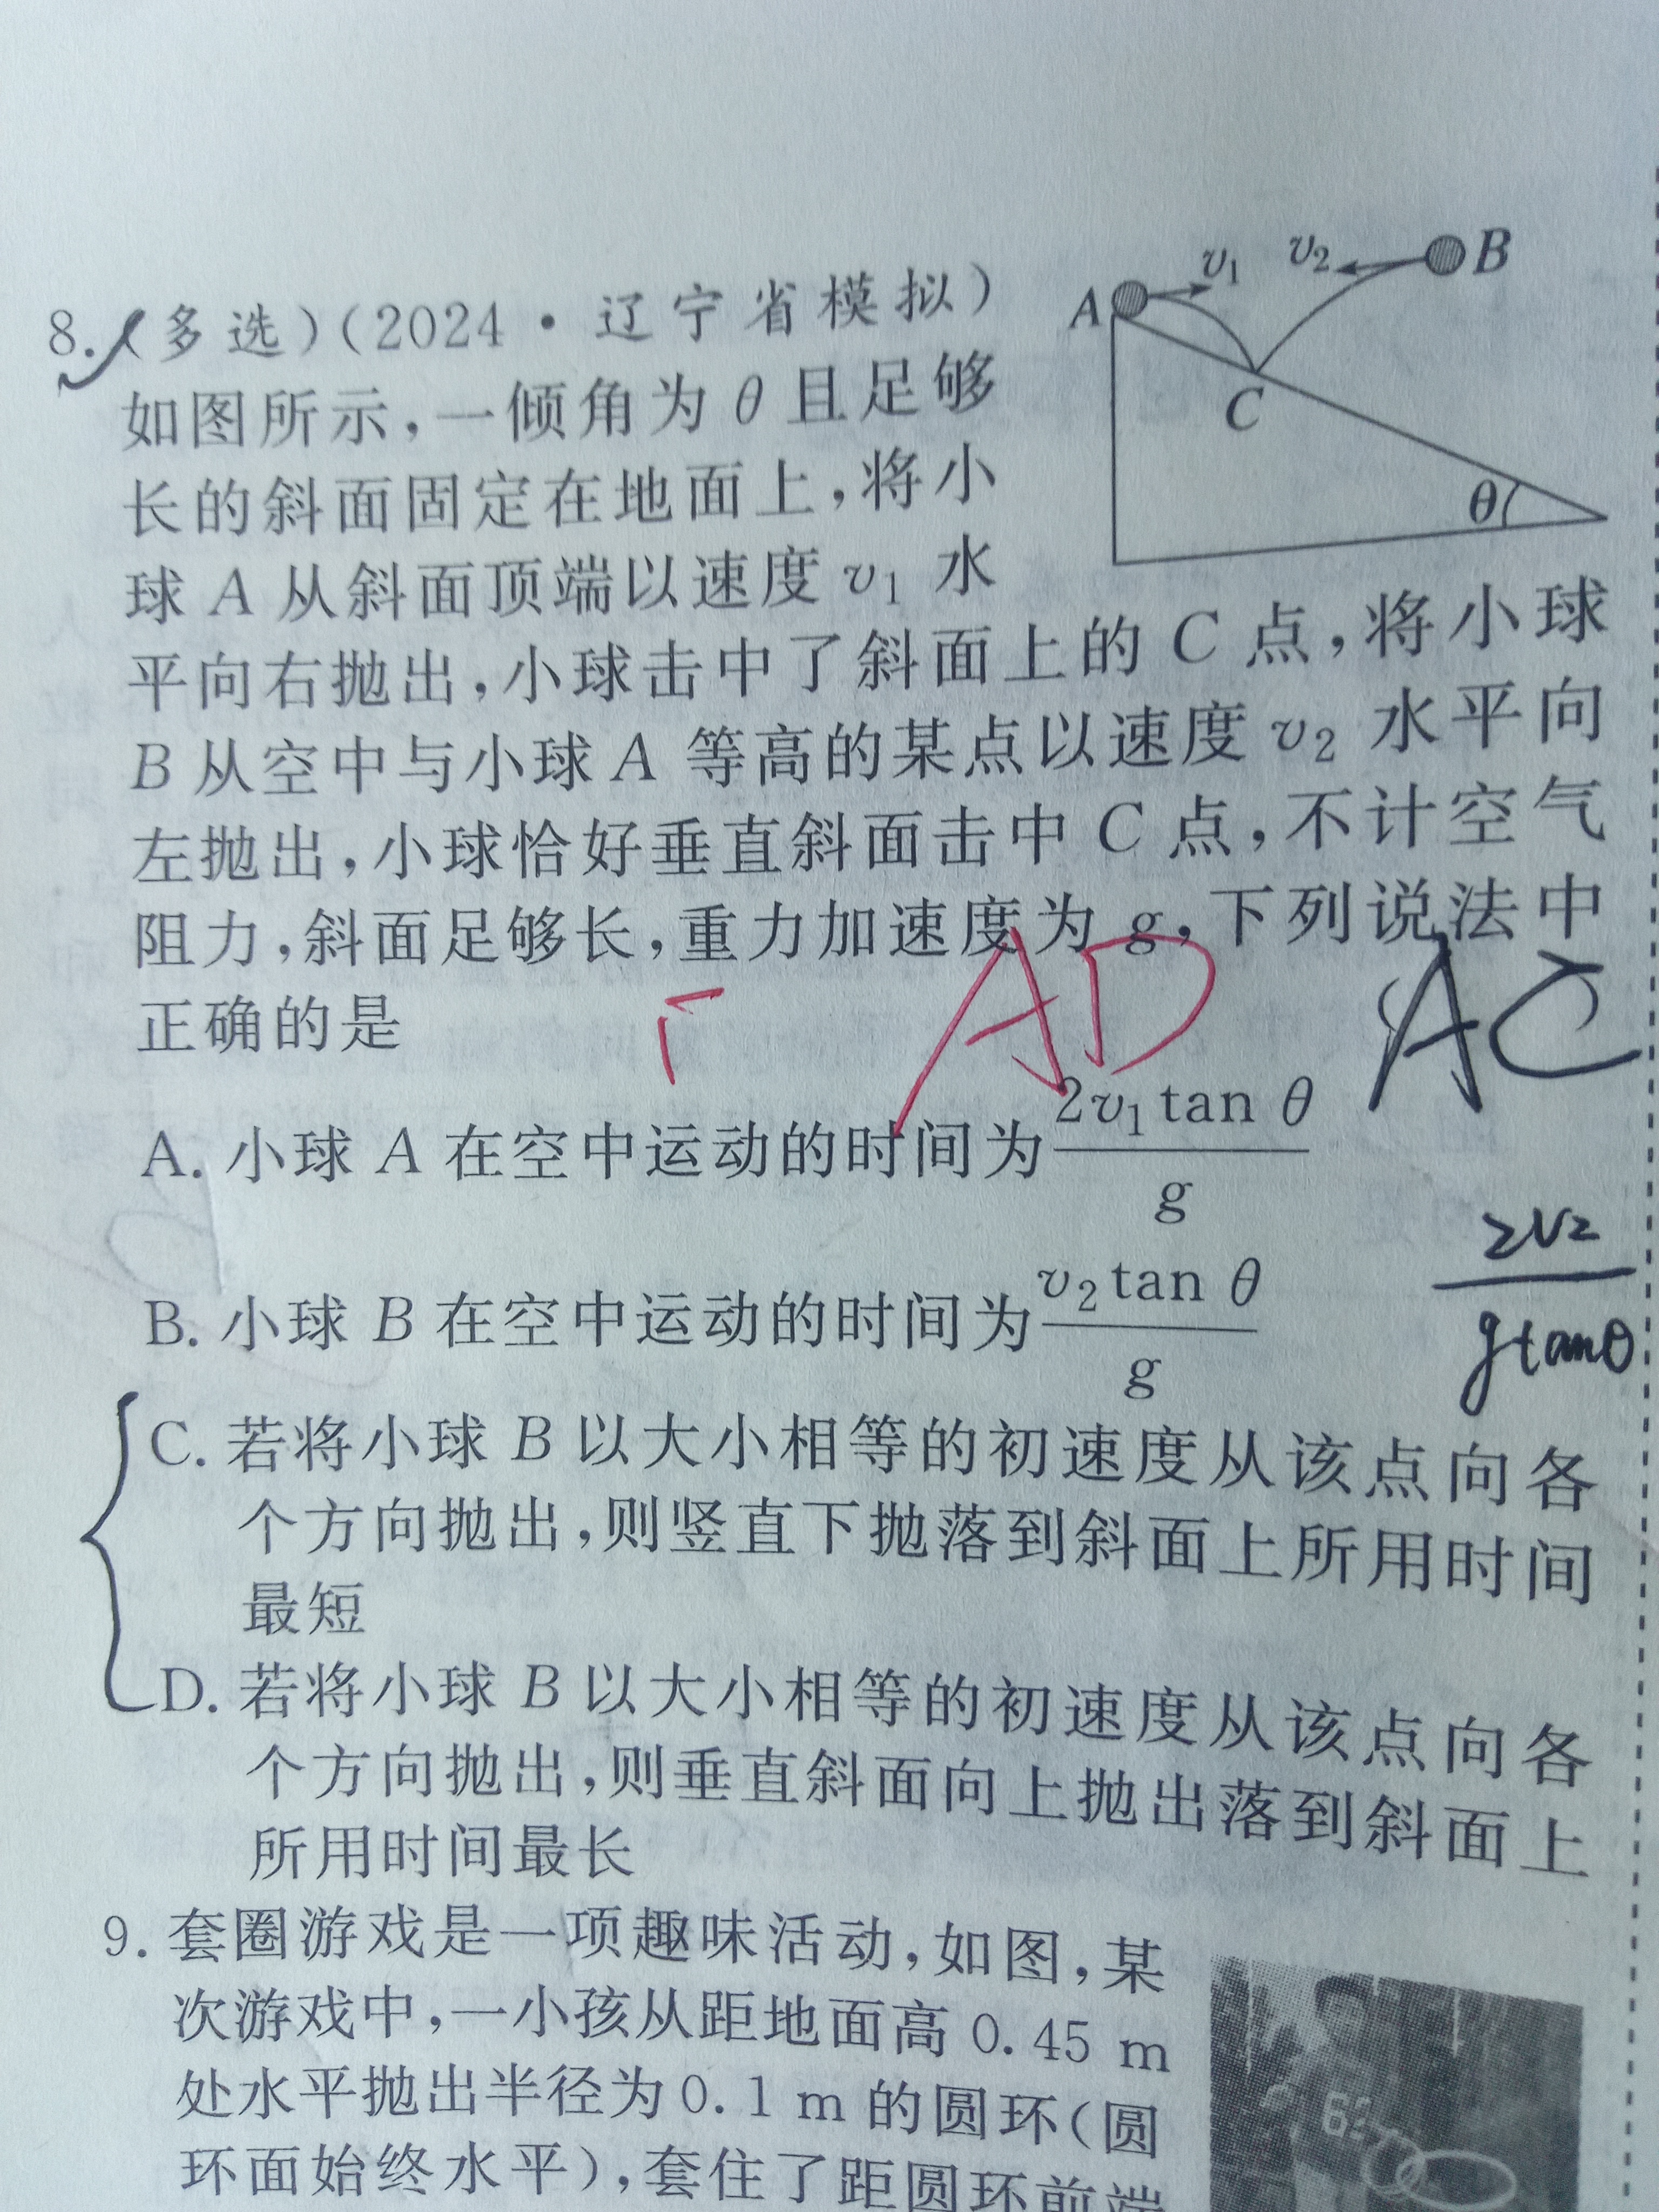 v₁ v₂ B
A
C
θ
8. (多选)(2024·辽宁省模拟)
如图所示,一倾角为 θ 且足够
长的斜面固定在地面上,将小
球 A 从斜面顶端以速度 v₁ 水
平向右抛出,小球击中了斜面上的 C 点,将小球
B 从空中与小球 A 等高的某点以速度 v₂ 水平向
左抛出,小球恰好垂直斜面击中 C 点,不计空气
阻力,斜面足够长,重力加速度为 g,下列说法中
正确的是
AD
AC
A. 小球 A 在空中运动的时间为 2v₁tan θ/g
B. 小球 B 在空中运动的时间为 v₂tan θ/g
2v₂/gtanθ
C. 若将小球 B 以大小相等的初速度从该点向各
个方向抛出,则竖直下抛落到斜面上所用时间
最短
D. 若将小球 B 以大小相等的初速度从该点向各
个方向抛出,则垂直斜面向上抛出落到斜面上
所用时间最长
9. 套圈游戏是一项趣味活动,如图,某
次游戏中,一小孩从距地面高 0.45 m
处水平抛出半径为0.1 m 的圆环(圆
环面始终水平),套住了距圆环前端